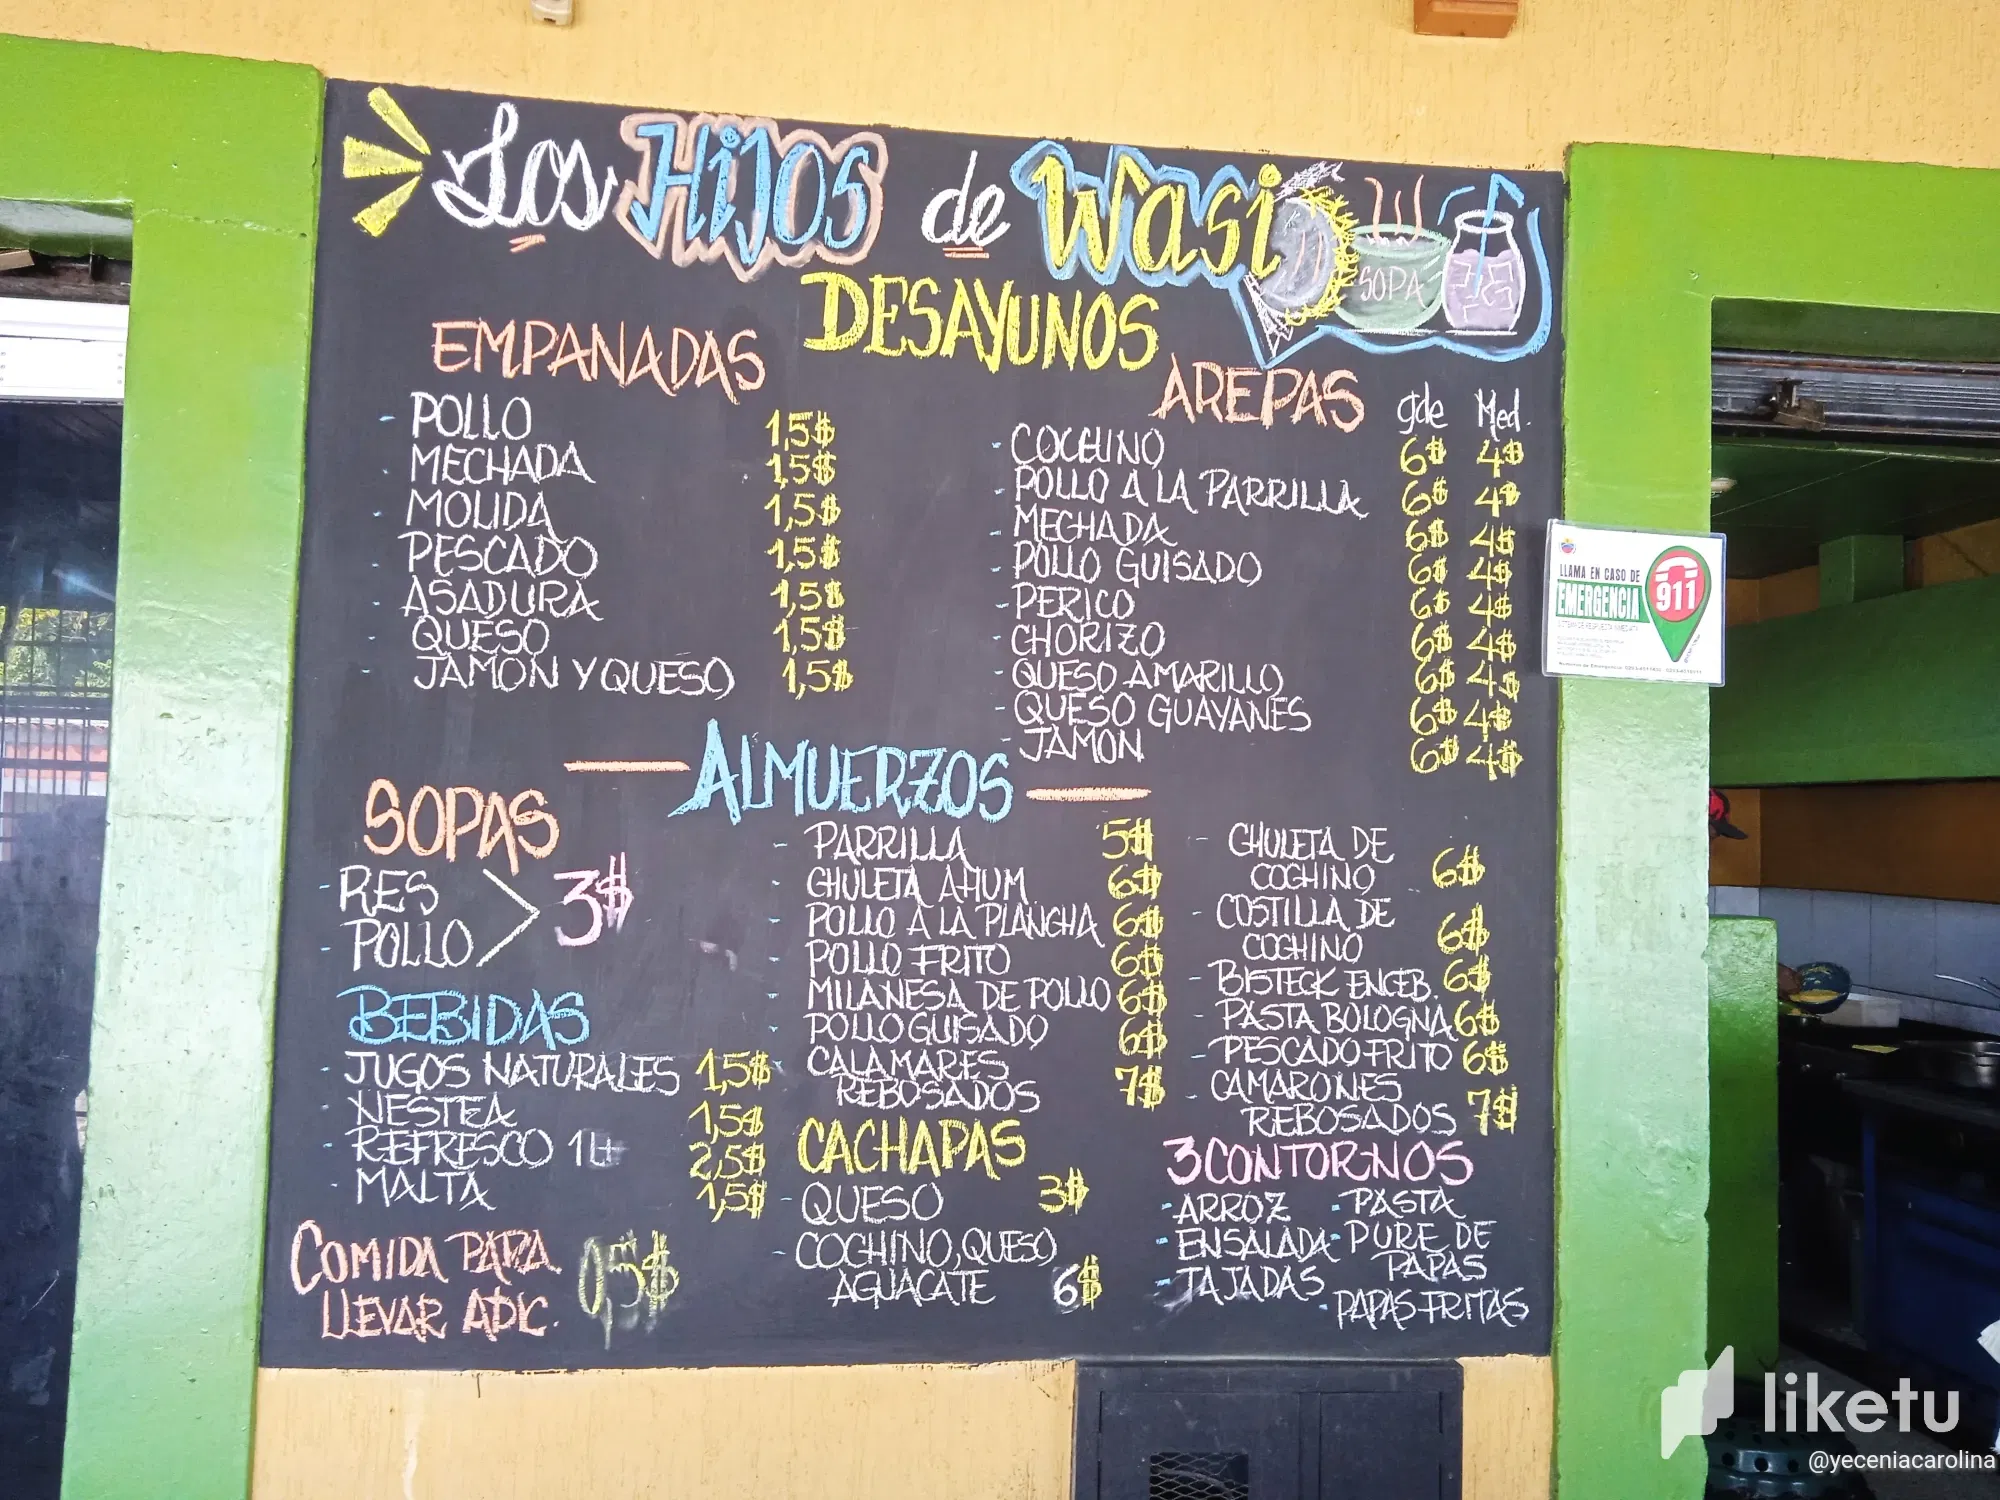 Los Hijos de Wasi
SOPA
DESAYUNOS
EMPANADAS
- POLLO 1,5$
- MECHADA 1,5$
- MOLIDA 1,5$
- PESCADO 1,5$
- ASADURA 1,5$
- QUESO 1,5$
- JAMON Y QUESO 1,5$
AREPAS gde Med.
- COCHINO 6$ 4$
- POLLO A LA PARRILLA 6$ 4$
- MECHADA 6$ 4$
- POLLO GUISADO 6$ 4$
- PERICO 6$ 4$
- CHORIZO 6$ 4$
- QUESO AMARILLO 6$ 4$
- QUESO GUAYANES 6$ 4$
- JAMON 6$ 4$
ALMUERZOS
SOPAS
- RES
- POLLO > 3$
BEBIDAS
- JUGOS NATURALES 1,5$
- NESTEA 1,5$
- REFRESCO 1Lt 2,5$
- MALTA 1,5$
COMIDA PARA
LLEVAR ADIC. 0,5$
- PARRILLA 5$
- CHULETA AHUM 6$
- POLLO A LA PLANCHA 6$
- POLLO FRITO 6$
- MILANESA DE POLLO 6$
- POLLO GUISADO 6$
- CALAMARES
REBOSADOS 7$
CACHAPAS
- QUESO 3$
- COCHINO, QUESO,
AGUACATE 6$
- CHULETA DE
COCHINO 6$
- COSTILLA DE
COCHINO 6$
- BISTECK ENCEB. 6$
- PASTA BOLOGNA 6$
- PESCADO FRITO 6$
- CAMARONES
REBOSADOS 7$
3 CONTORNOS
- ARROZ - PASTA
- ENSALADA - PURE DE
PAPAS
- TAJADAS
- PAPAS FRITAS
LLAMA EN CASO DE
EMERGENCIA
911
liketu
@yeceniacarolina